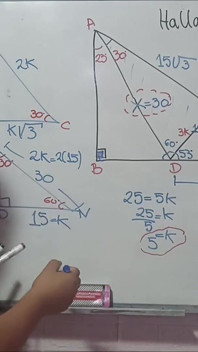 Halla
A
2K
30°
C
K√3
25
30°
15√3
X=30
3K
60°
55
B
D
2K=2(15)
30
60°
15=K
N
25=5K
25/5=K
5=K